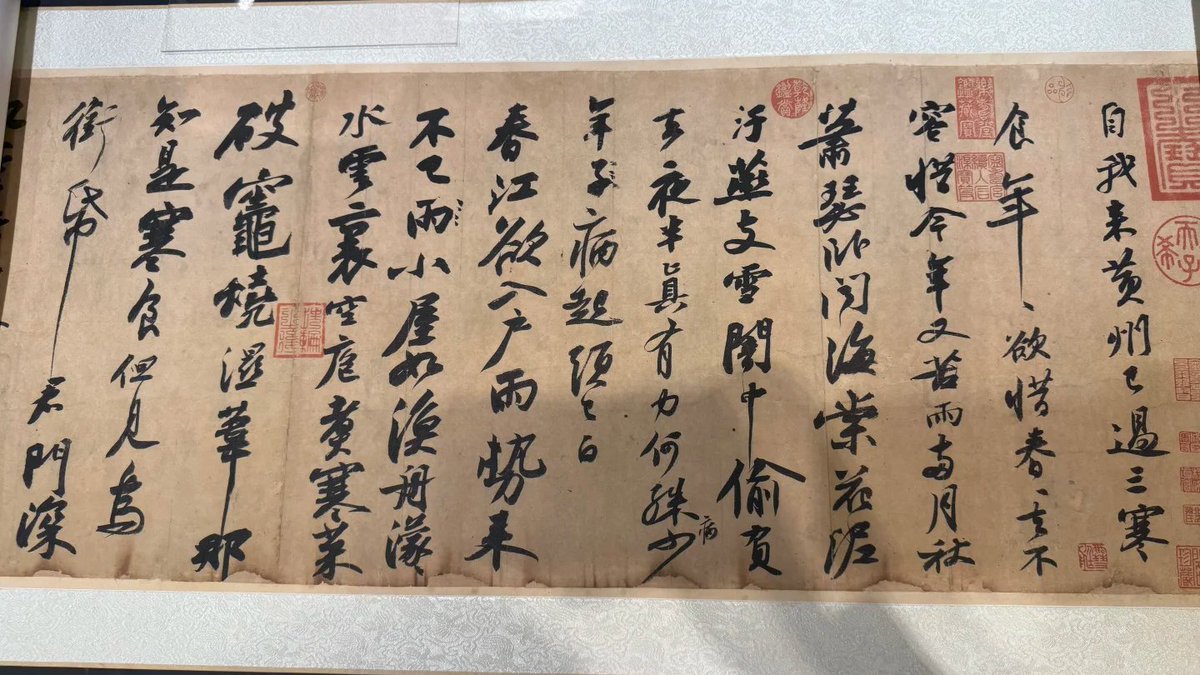 自我来黄州已過三寒
食年〻欲惜春〻去不
容惜今年又苦雨兩月秋
蕭瑟卧聞海棠花泥
汙燕支雪闇中偷負
去夜半真有力何殊少病
年子病起頭已白
春江欲入户雨勢来
不已雨小屋如漁舟濛〻
水雲裏空庖煮寒菜
破竈燒濕葦那
知是寒食但見烏
銜帋君門深